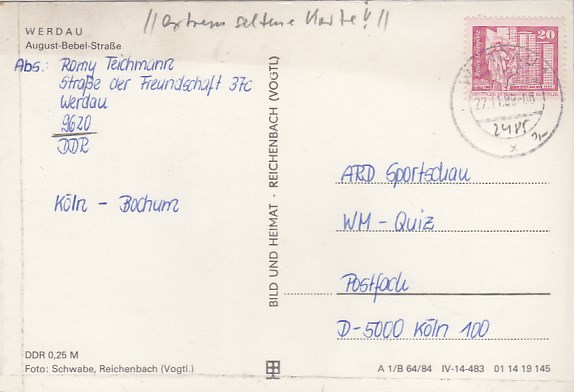 //extrem seltene Karte!!//
WERDAU
August-Bebel-Straße
Abs.: Romy Teichmann
Straße der Freundschaft 37c
Werdau
9620
DDR
Köln - Bochum
BILD UND HEIMAT · REICHENBACH (VOGTL)
20
27.11.89
2485
x
ARD Sportschau
WM - Quiz
Postfach
D-5000 Köln 100
DDR 0,25 M
Foto: Schwabe, Reichenbach (Vogtl.)
A 1/B 64/84 IV-14-483 01 14 19 145